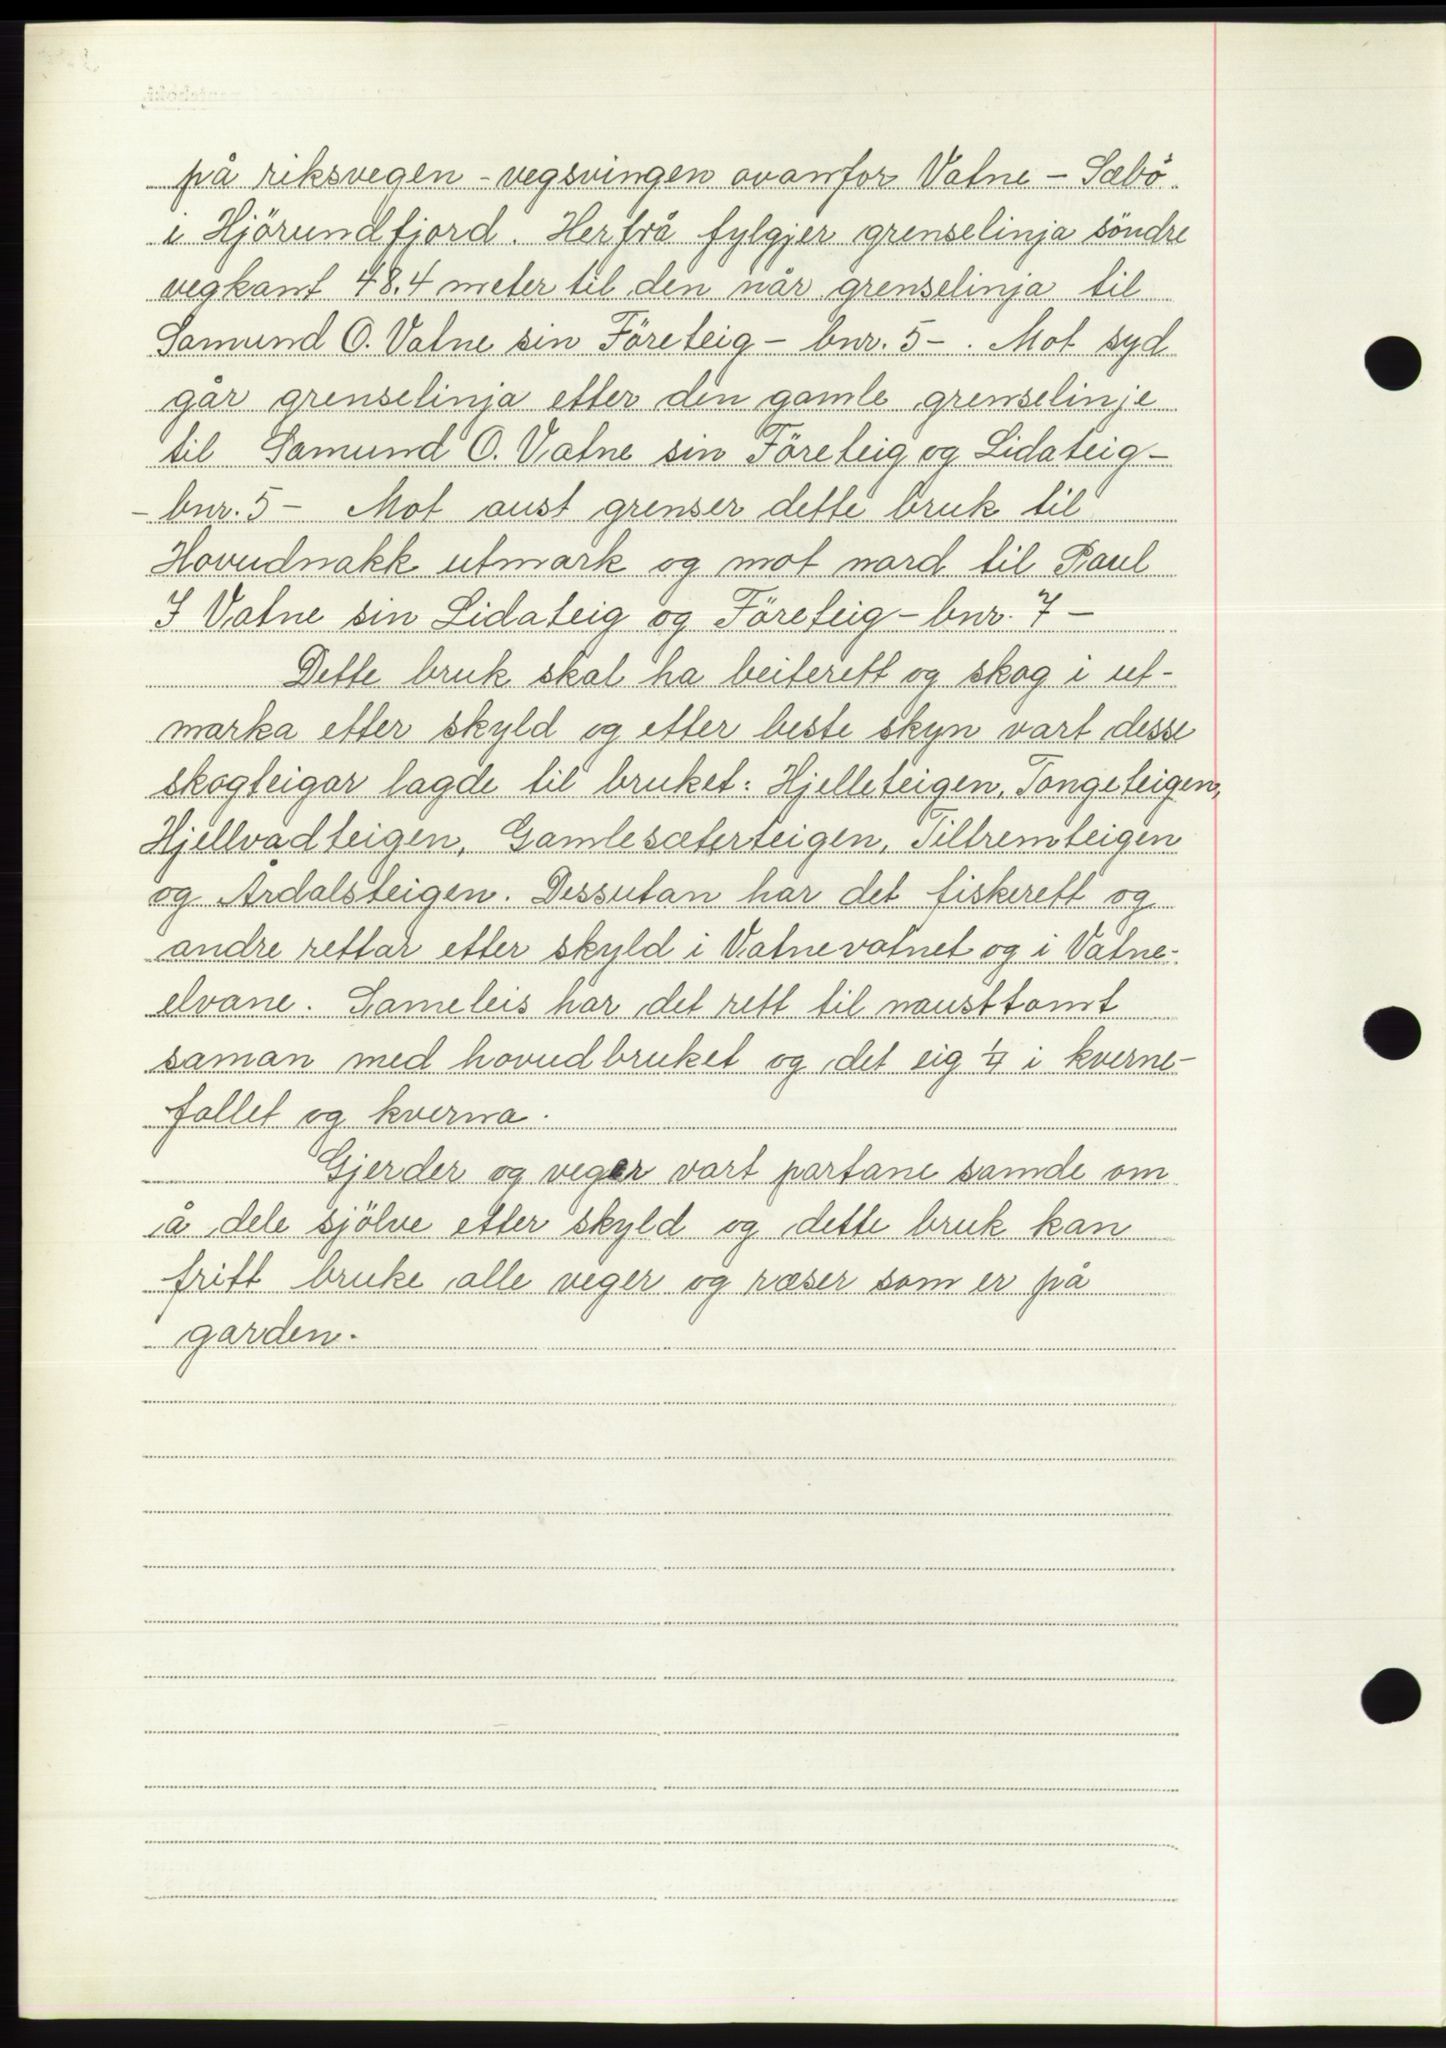 på riksvegen - vegsvingen ovamfor Vatne - Sæbö
i Hjörundfjord. Herfrå fylgjer grenselinja söndre
vegkant 48.4 meter til den når grenselinja til
Samund O. Vatne sin Företeig - bnr. 5 - . Mot syd
går grenselinja etter den gamle grenselinje
til Samund O. Vatne sin Företeig og Lidateig -
- bnr. 5 - Mot aust grenser dette bruk til
Hovudnakk utmark og mot nord til Paul
I Vatne sin Lidateig og Företeig - bnr. 7 -
Dette bruk skal ha beiterett og skog i ut-
marka etter skyld og etter beste skyn vart desse
skogteigar lagde til bruket: Hjelleteigen, Tongeteigen,
Hjellvadteigen, Gamlesæterteigen, Tiltremteigen
og Årdalsteigen. Dessutan har det fiskerett og
andre rettar etter skyld i Vatnevatnet og i Vatne-
elvane. Sameleis har det rett til nausttomt
saman med hovudbruket og det eig 1/4 i kverne-
fallet og kverna.
Gjerder og veger vart partane samde om
å dele sjölve etter skyld og dette bruk kan
fritt bruke alle veger og ræser som er på
garden.